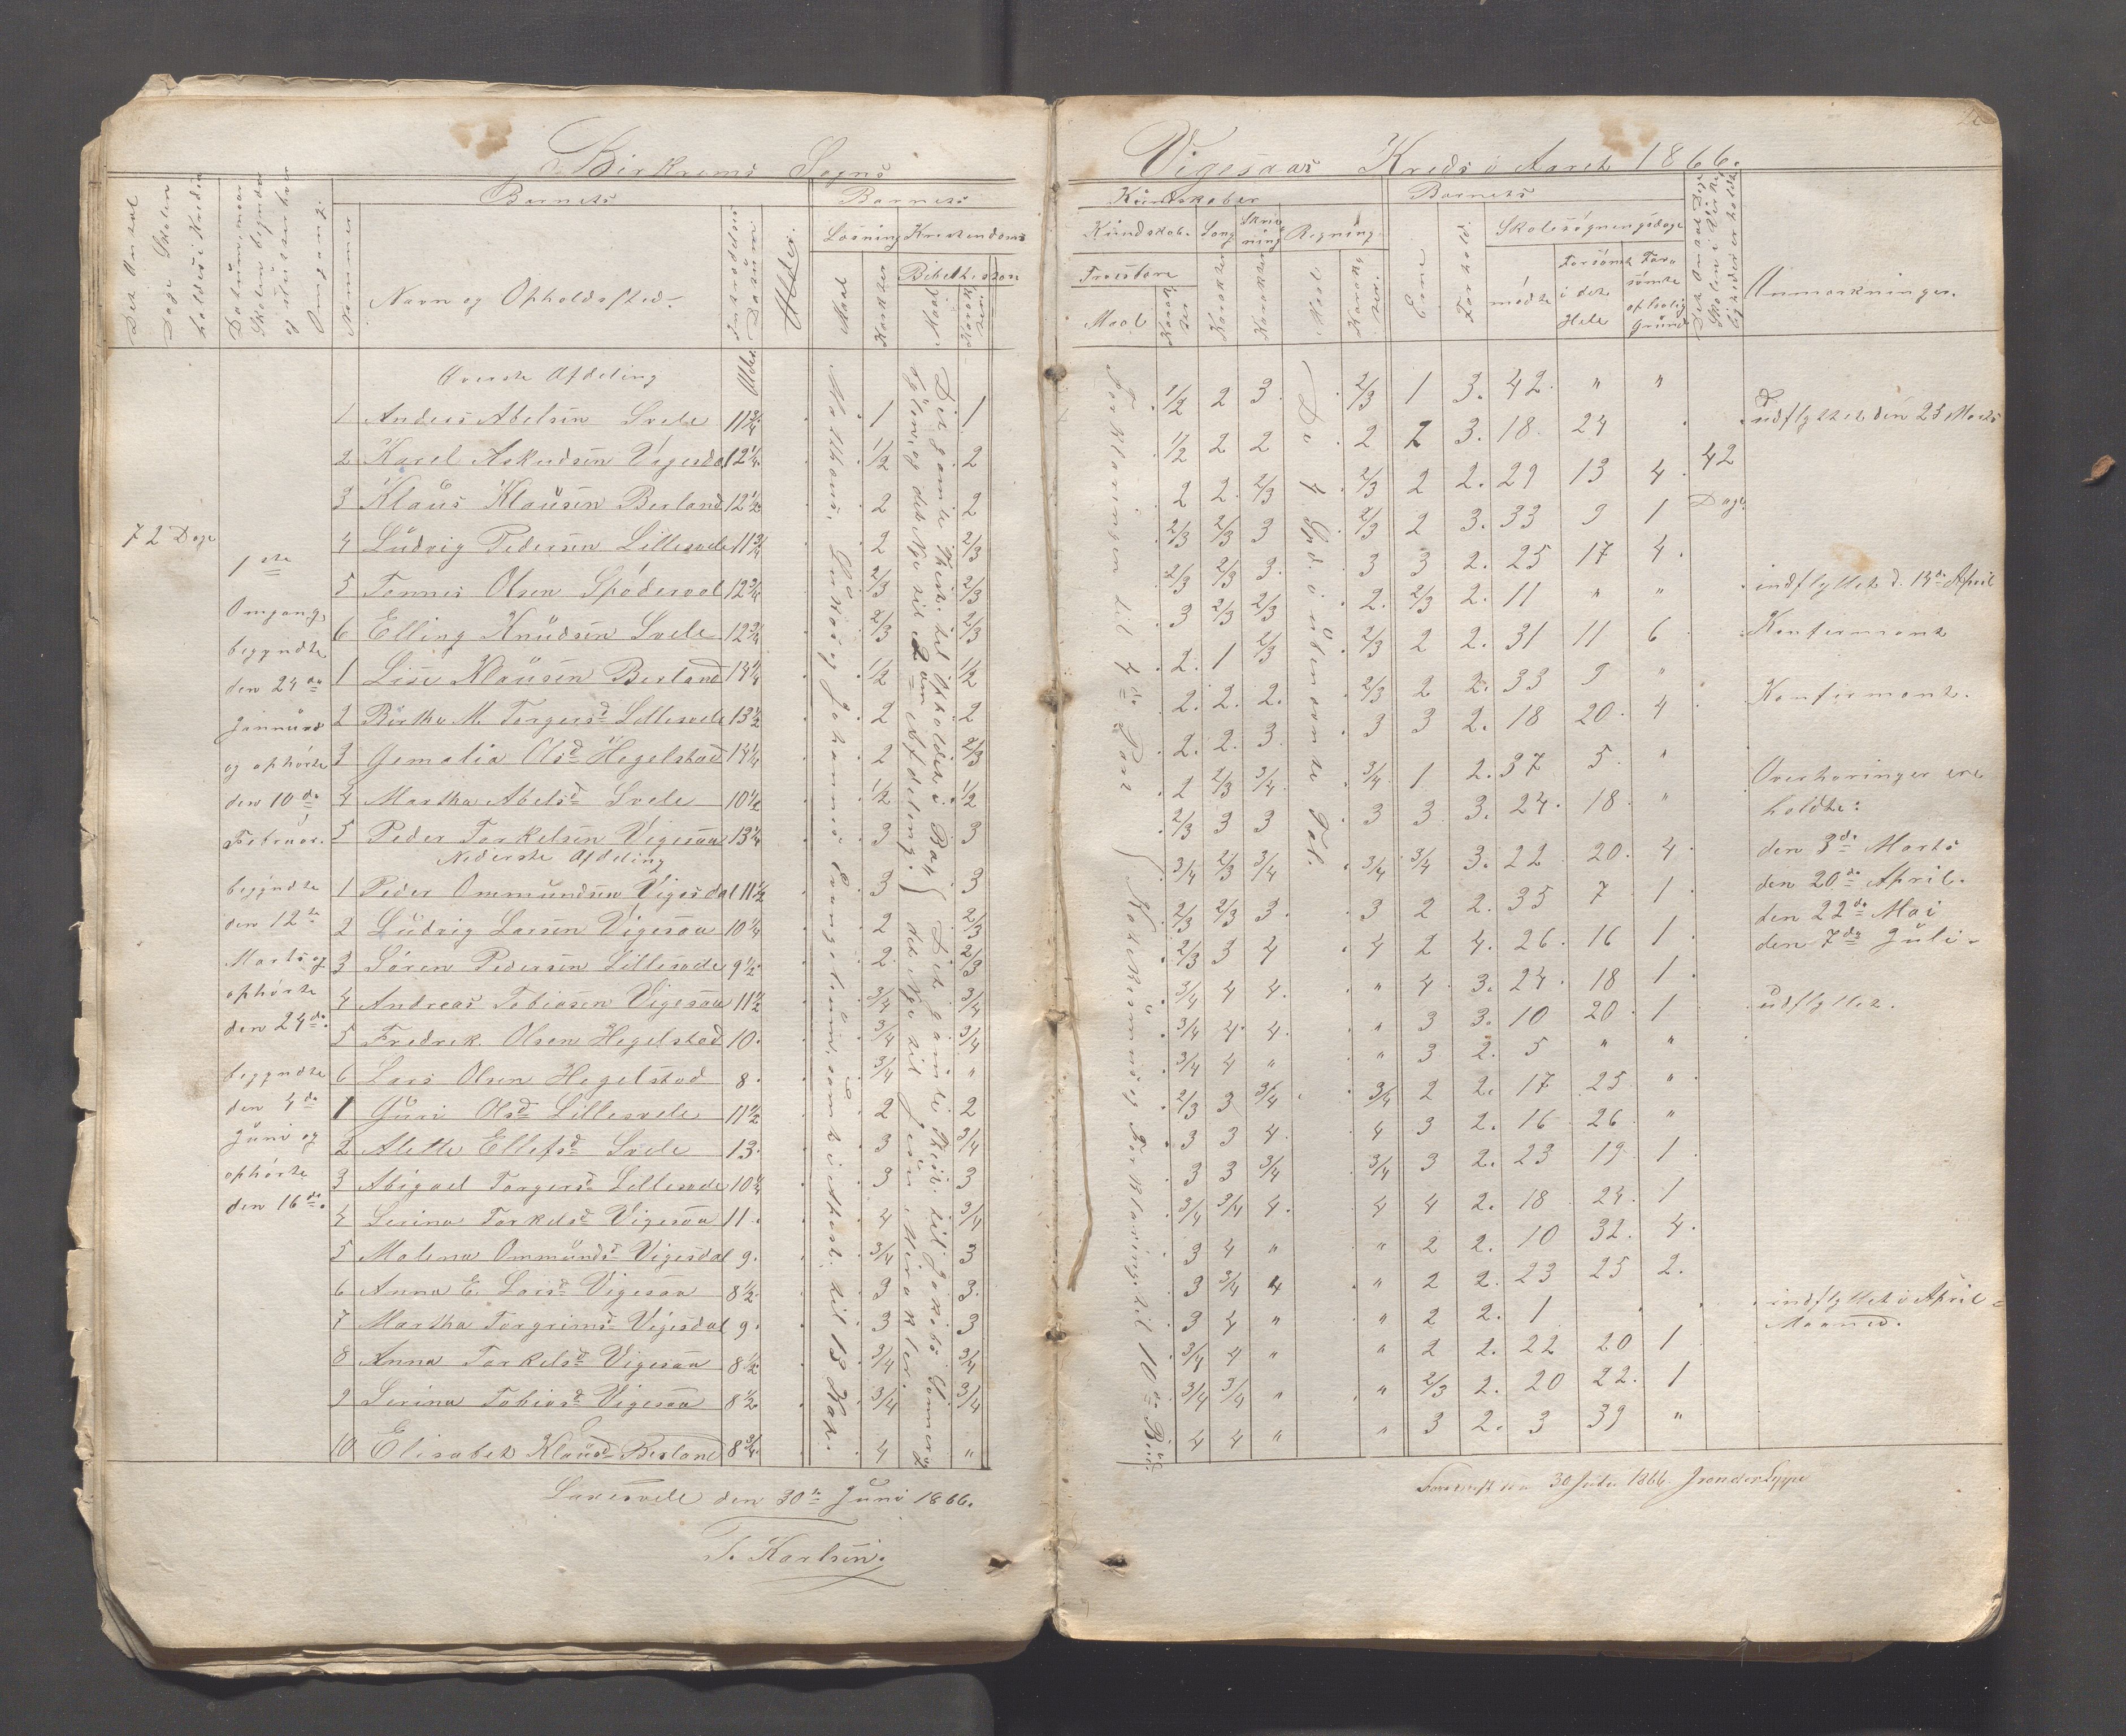 Birkrems Sogns
Vigesaas Kreds i Aaret 1866.
Det Antal Dage Skolen holdes i Kredsen
Datum, naar Skolen begynder og slutter hver Omgang.
Nummer
Barnets
Navn og Opholdssted.
Indtrædelses Datum.
Alder.
Barnets
Læsning
Kristendoms
Maal
Karakter
Bibelhistorie
Kundskaber
Kundskab.
Troeslære
Maal
Sang
Skrivning
Regning
Karakter
Barnets
Evne
Forhold.
Skolesøgningsdage
mødte
Forsømte i det Hele
Forsømte af lovlig Grund
Det Antal Dage Skolen i Virkeligheden er holdt
Anmærkninger.
72 Dage
1ste Omgang,
begyndte
den 24de
Januar
og ophørte
den 10de
Februar.
begyndte
den 12te
Marts og
ophørte
den 24de.
begyndte
den 4de
Juni og
ophørte
den 16de.
Øverste Afdeling
Alder
1 Anders Abelsen Svele 11 3/4 1 1 1/2 2 3 2/3 1 3. 42. " "
2 Karel Askudsen Vigesdal 12 1/4 1/2 2 1/2 2 2 2 2 3. 18. 24 udflyttet den 23 Marts
3 Klaus Klausen Berland 12 1/2 2 2 2 2 2/3 2/3 2 2. 29 13 4
4 Ludvig Pedersen Lillesvele 11 3/4 2 2/3 2/3 2/3 3 2/3 2 3. 33 9 1
5 Tønnes Olsen Spødervol 12 3/4 2/3 2/3 2/3 2/3 3. 3 3 2. 25 17 4.
6 Elling Knudsen Svele 12 3/4 2/3 2/3 3 2/3 2/3 2. 2/3 2. 11 " " indflyttet d. 13de April
1 Lise Klausen Berland 14 1/4 1/2 1/2 2. 1 2/3 2/3 2 2. 31 11 6 Konfirmant
2 Birtha M. Torgersd. Lillesvele 13 1/2 2 2 2. 2. 2. 2/3 2 2. 33 9 "
3 Gemalia Olsd Hegelstad 14 1/4 2 2/3 2. 2. 3. 3 3 2. 18 20. 4 Konfirmant.
4 Martha Abelsd Svele 10 1/2 1/2 1/2 2 2/3 3/4. 3/4. 1 2. 37 5. "
5 Peder Torkelsen Vigesaa 13 1/4 3 3 2/3 3 3 3 3 3. 24. 18. "
Nederste Afdeling
1 Peder Ommundsen Vigesdal 11 1/2 3 3 3/4 2/3 3/4 3/4 3/4 3. 22 20. 4.
2 Ludvig Larsen Vigesaa 10 1/4 2 2/3 2/3 2/3 3. 3 2 2. 35 7 1
3 Søren Pedersen Lillesvele 9 1/2. 2. 2/3 2/3 3 4 4 2 4. 26. 16 1
4 Andreas Tobiasen Vigesaa 11 1/2 3/4 3/4 3/4 4 4. " 4. 3. 24. 18 1.
5 Fredrik Olsen Hegelstad 10. 3/4 3/4 3/4 4. 4. " 3 3. 10 20. 1 udflyttet.
6 Lars Olsen Hegelstad 8. 3/4 " 3/4 4 " " 3 2. 5 " "
1 Guri Olsd Lillesvele 11 1/2 2 2 2/3 3 3/4 3/4 2 2. 17 25 "
2 Alette Ellefsd Svele 13. 3 3/4 3 3 4. 4 3 2. 16. 26. "
3 Abigael Torgersd Lillesvele 10 1/4 3 3 3 3 3/4 3/4 3 2. 23 19 1
4 Serina Torkelsd Vigesaa 11. 4 3/4 3/4 3/4 4. 4 4 2. 18 24. 1
5 Malena Ommundsd Vigesdal 9. 3/4 3 3 4 " " 2 2. 10 32. 4.
6 Anna E. Larsd Vigesaa 8 1/2. 3 3. 3 3/4 4 " 2 2. 23 25 2.
7 Martha Torgrimsd Vigesdal 9. 3 3 3 4 " " 2 2. 1 indflyttet i April Maaned.
8 Anna Torkelsd Vigesaa 8 1/2. 3/4 3/4 3/4 4 " " 2 2. 22 20 1
9 Serina Tobiasd Vigesaa 8 1/2 3/4 3/4 3/4 3/4 " " 2/3 2. 20 22. 1
10 Elisabet Klausd Berland 8 3/4. 4 " 4 4 " " 3 2. 3 39 "
Matthæus, Lukas og Johannes Evangelium, samt Apost. til 13 Kap.
Det gamle Thest. til Opholdet i Babylon, og det Nye til 2den Afdeling.
Det gamle Thest. til Jakobs Sønner og det Nye til Jesu Mirakler.
Forklaringen til 4de Part
Katekismus og Forklaringen til 10de Bud.
De 4 Spd. i ubenævnte Tal.
42 Dage
Overhøringer ere
holdte:
den 3de Marts
den 20de April.
den 22de Mai
den 7de Juli.
Lavesvele den 30te Juni 1866.
T. Karlsen.
30 Juli 1866.